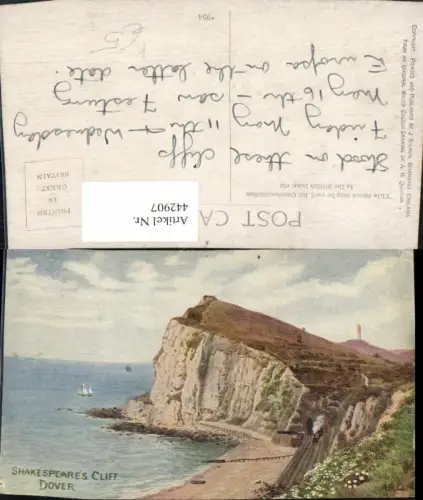 POST CA
This space may be used for communication
In the British Isles
PRINTED
IN
GREAT
BRITAIN
Artikel Nr.
442907
Stood on these cliffs
Friday May 11th + Wednesday
May 16th – saw Festung
Europa on the latter date.
COPYRIGHT. PRINTED AND PUBLISHED BY J. SALMON, SEVENOAKS, ENGLAND.
FROM AN ORIGINAL WATER COLOUR DRAWING BY A. R. QUINTON.
*954
SHAKESPEARE'S CLIFF
DOVER